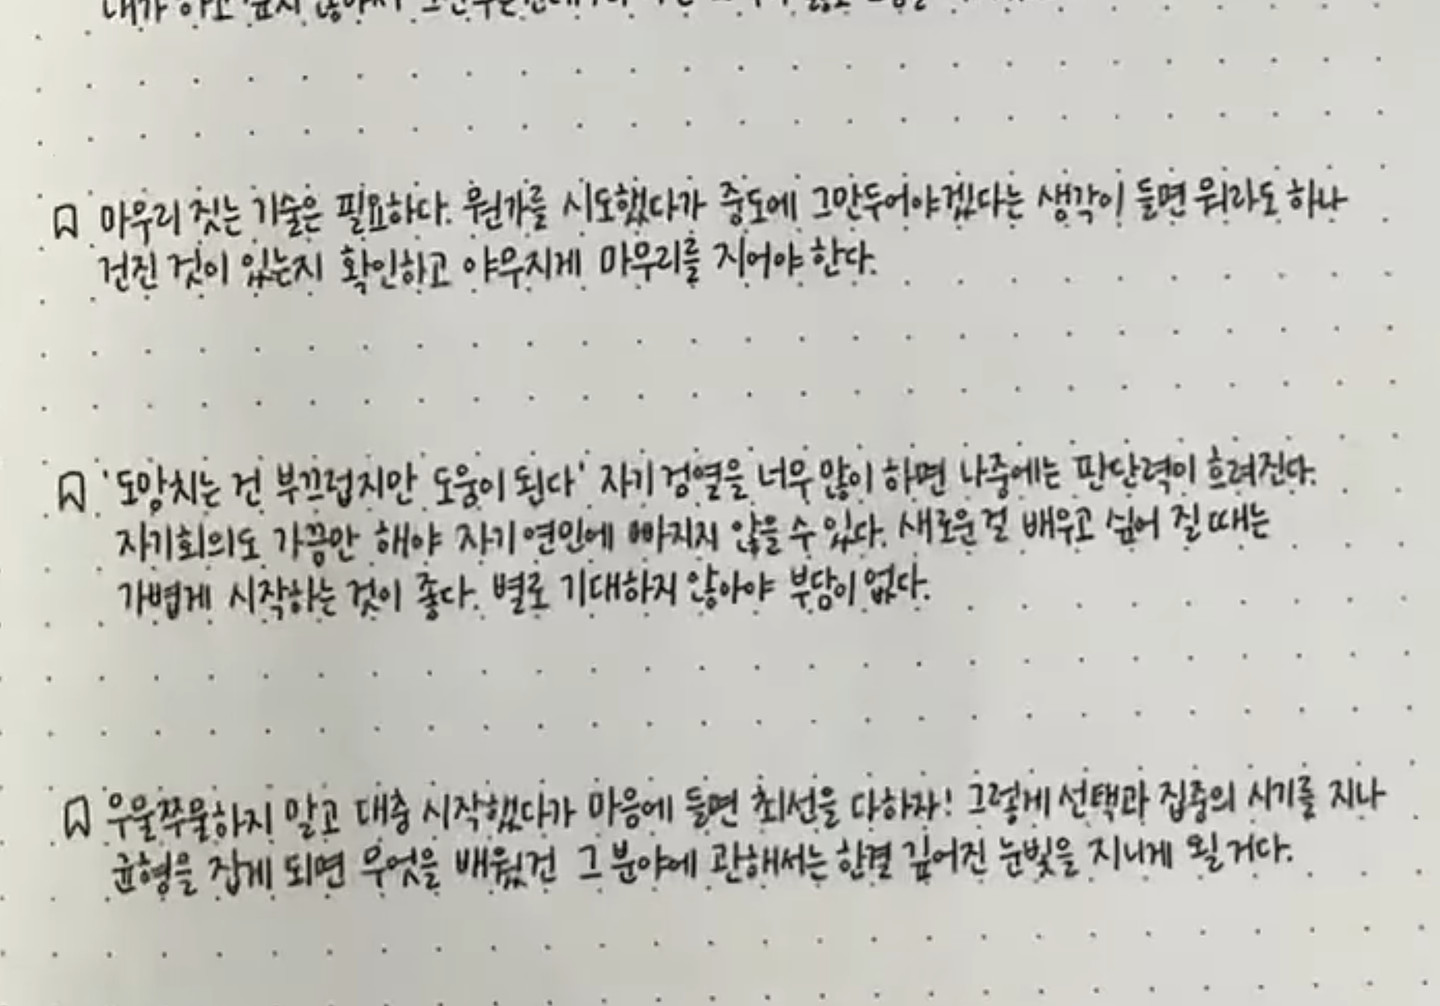 내가 하고 싶지 않아서
마무리 짓는 기술은 필요하다. 뭔가를 시도했다가 중도에 그만두어야겠다는 생각이 들면 뭐라도 하나
건진 것이 있는지 확인하고 야무지게 마무리를 지어야 한다.
'도망치는 건 부끄럽지만 도움이 된다' 자기 검열을 너무 많이 하면 나중에는 판단력이 흐려진다.
자기회의도 가끔만 해야 자기 연민에 빠지지 않을 수 있다. 새로운 걸 배우고 싶어 질 때는
가볍게 시작하는 것이 좋다. 별로 기대하지 않아야 부담이 없다.
우울쭈물하지 말고 대충 시작했다가 마음에 들면 최선을 다하자! 그렇게 선택과 집중의 시기를 지나
균형을 잡게 되면 무엇을 배웠건 그 분야에 관해서는 한결 깊어진 눈빛을 지니게 될 거다.